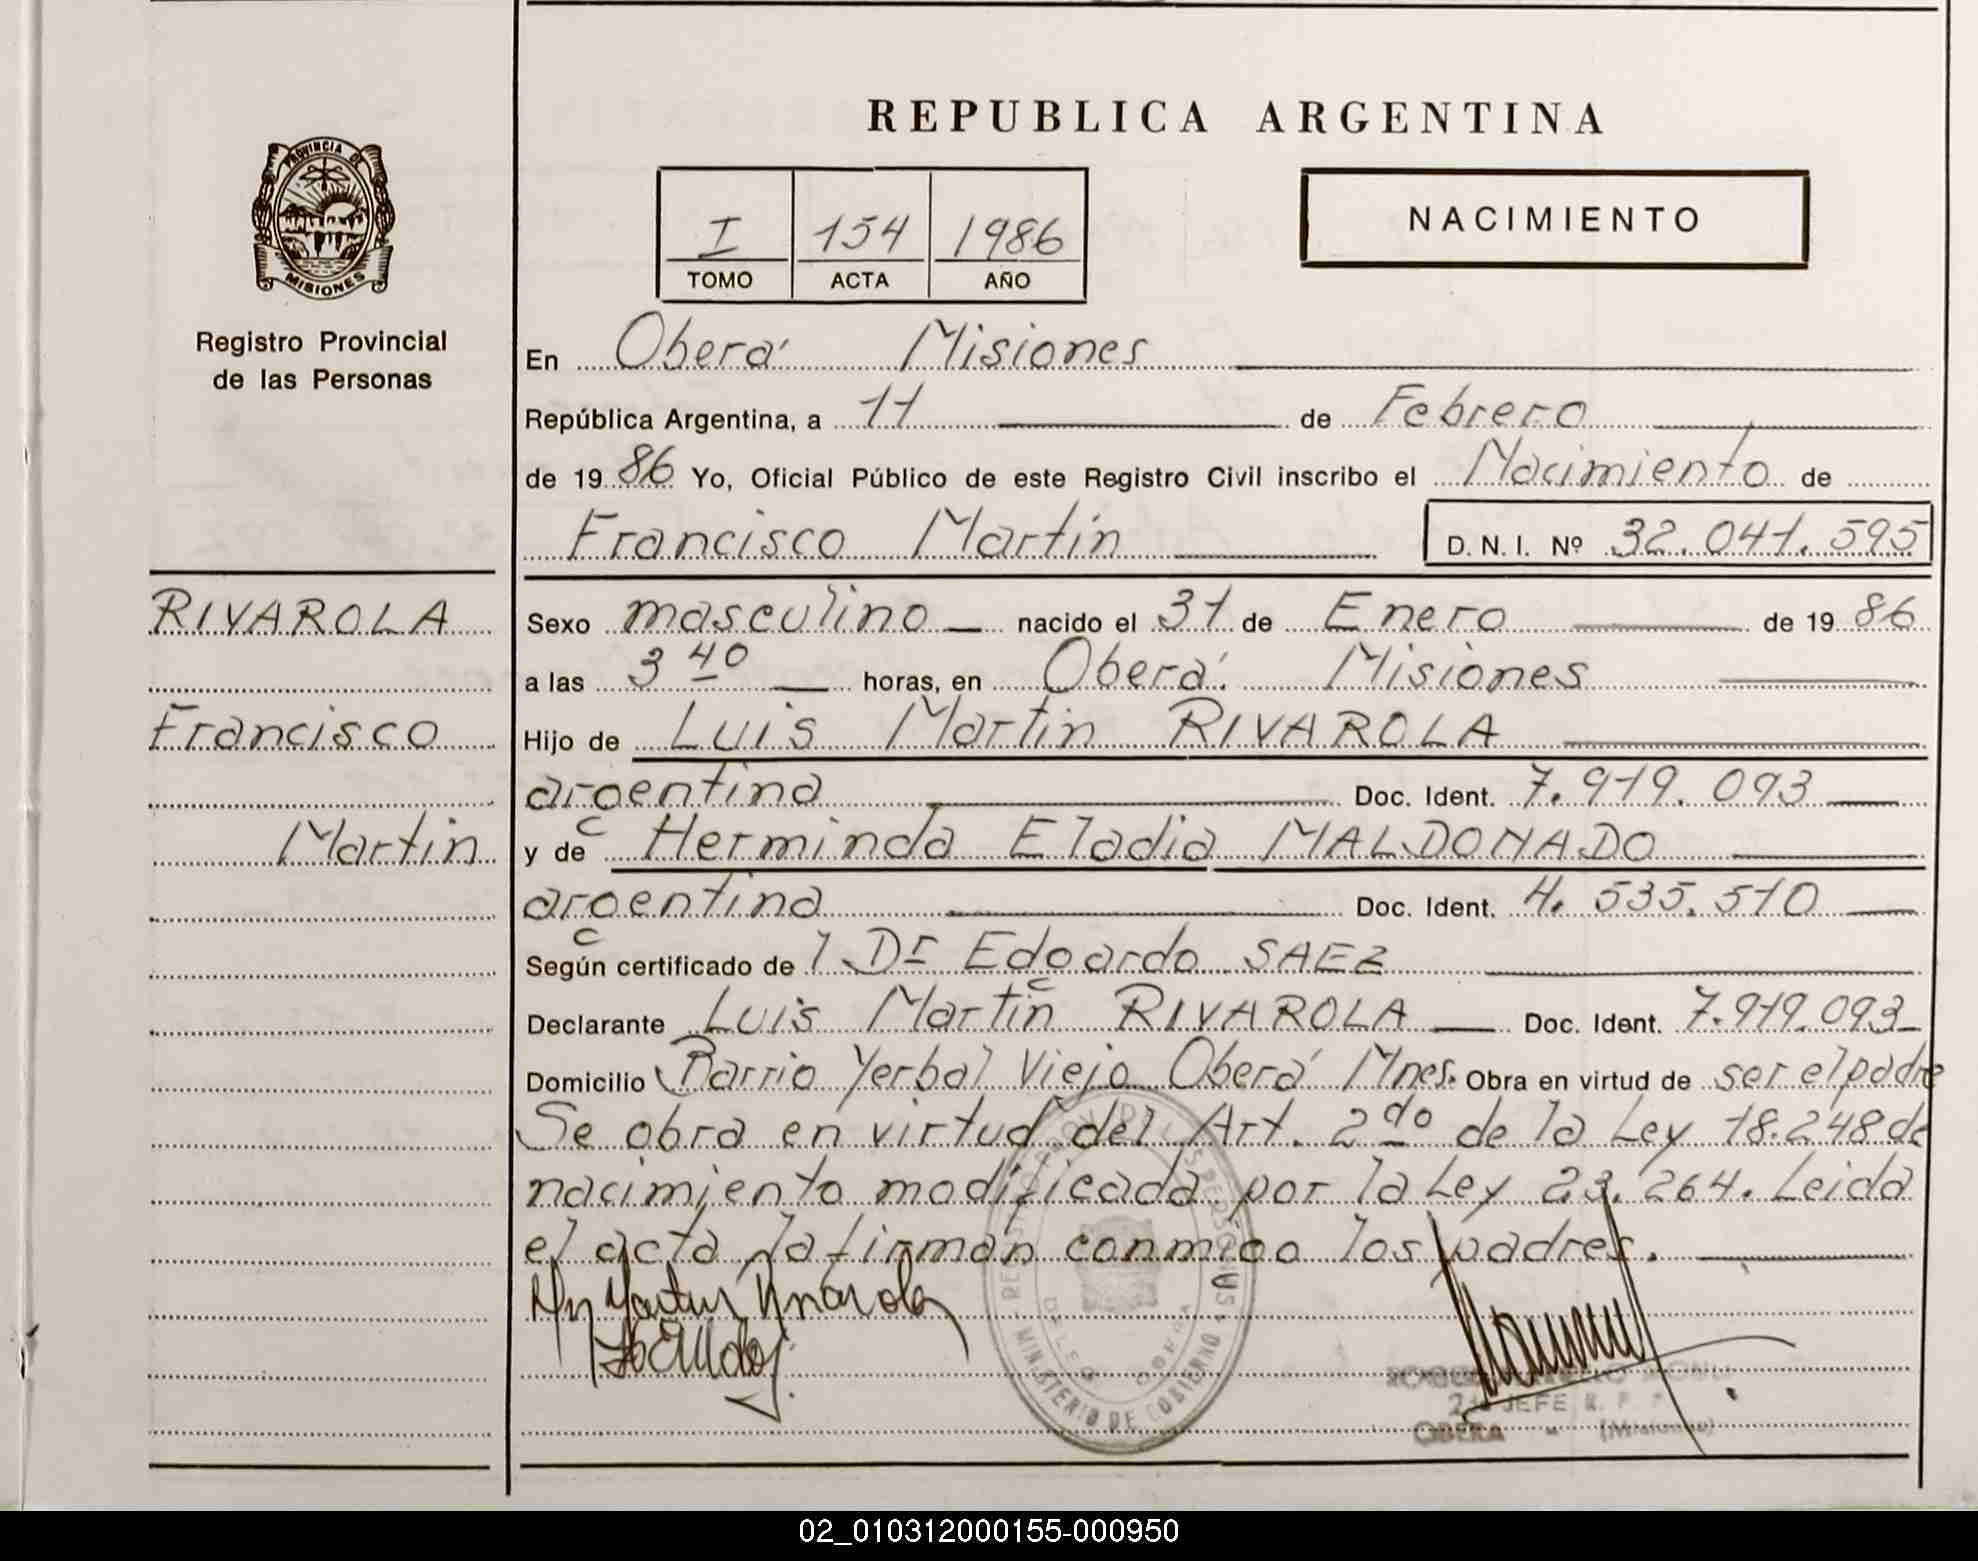 REPUBLICA ARGENTINA
PROVINCIA DE
MISIONES
Registro Provincial
de las Personas
I 154 1986
TOMO ACTA AÑO
NACIMIENTO
En Oberá Misiones
República Argentina, a 11 de Febrero
de 19 86 Yo, Oficial Público de este Registro Civil inscribo el Nacimiento de
Francisco Martin
D. N. I. Nº 32.041.595
RIVAROLA
Francisco
Martin
Sexo masculino nacido el 31 de Enero de 19 86
a las 3 40 horas, en Oberá. Misiones
Hijo de Luis Martin RIVAROLA
argentina Doc. Ident. 7.919.093
y de Herminda Eladia MALDONADO
argentina Doc. Ident. 4.535.510
Según certificado de l Dr Edgardo SAEZ
Declarante Luis Martin RIVAROLA Doc. Ident. 7.919.093
Domicilio Barrio Yerbal Viejo Oberá Mnes. Obra en virtud de ser el padre
Se obra en virtud del Art. 2do de la Ley 18.248 de
nacimiento modificada por la Ley 23.264. Leida
el acta, la firman conmigo los padres.
MINISTERIO DE GOBIERNO
2do JEFE R. P.
OBERA - (Misiones)
02_010312000155-000950